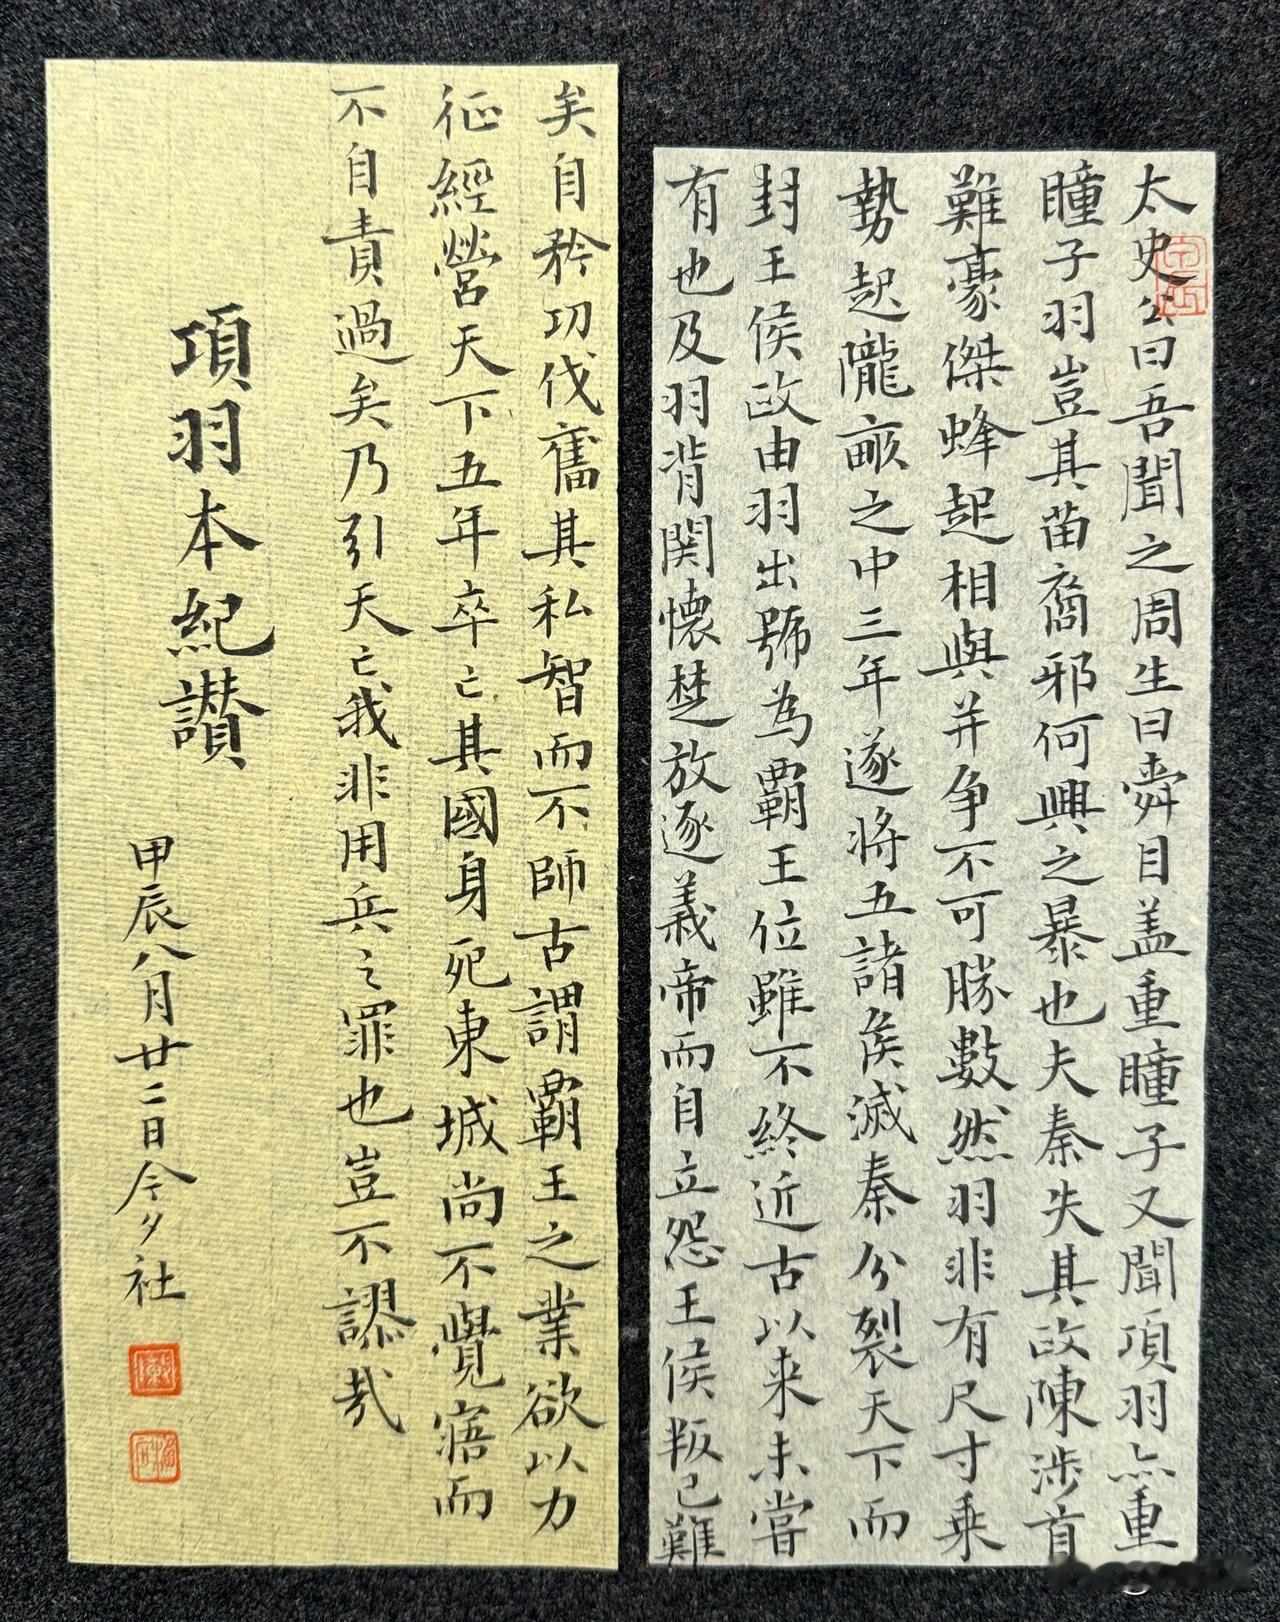 太史公曰吾聞之周生曰舜目盖重瞳子又聞項羽亦重
瞳子羽豈其苗裔邪何興之暴也夫秦失其政陳涉首
難豪傑蜂起相與并争不可勝數然羽非有尺寸乗
勢起隴畝之中三年遂将五諸侯滅秦分裂天下而
封王侯政由羽出號為覇王位雖不終近古以来未嘗
有也及羽背関懷楚放逐義帝而自立怨王侯叛己難
矣自矜功伐奮其私智而不師古謂覇王之業欲以力
征經營天下五年卒亡其國身死東城尚不覺寤而
不自責過矣乃引天亡我非用兵之罪也豈不謬哉
項羽本紀讃
甲辰八月廿二日今夕社